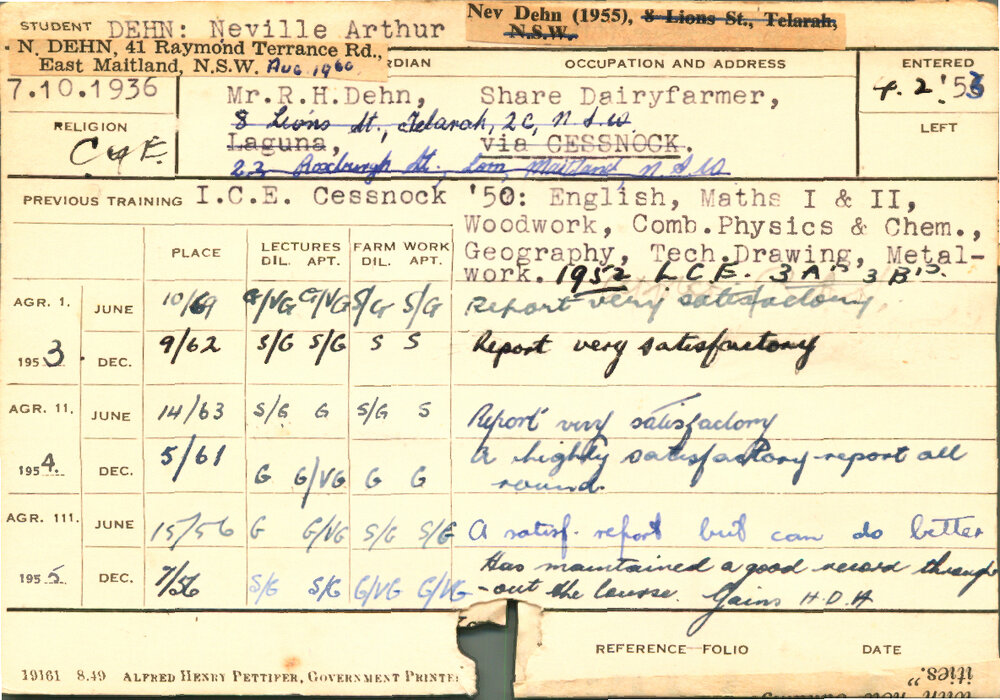 STUDENT DEHN: Neville Arthur
Nev Dehn (1955), 8 Lions St., Telarah,
N.S.W.
N. DEHN, 41 Raymond Terrance Rd.,
East Maitland, N.S.W. Aug. 1960
RDIAN OCCUPATION AND ADDRESS ENTERED
7.10.1936 Mr.R.H.Dehn, Share Dairyfarmer, 4.2.'53
8 Lions St., Telarah, 2C, N.S.W.
RELIGION Laguna, via CESSNOCK. LEFT
C of E.
23 Roxburgh St., Lorn, Maitland, N.S.W
PREVIOUS TRAINING I.C.E. Cessnock '50: English, Maths I & II,
Woodwork, Comb.Physics & Chem.,
Geography, Tech.Drawing, Metal-
work. 1952 L.C.E. 3 A's 3 B's.
PLACE LECTURES FARM WORK
DIL. APT. DIL. APT.
AGR. 1. JUNE 10/69 G/VG G/VG S/G S/G Report very satisfactory.
1953. DEC. 9/62 S/G S/G S S Report very satisfactory
AGR. 11. JUNE 14/63 S/G G S/G S Report very satisfactory
1954. DEC. 5/61 G G/VG G G A highly satisfactory report all
round.
AGR. 111. JUNE 15/56 G G/VG S/G S/G A satisf. report but can do better
1955. DEC. 7/56 S/G S/G G/VG G/VG Has maintained a good record through
-out the course. Gains H.D.A
REFERENCE-FOLIO DATE
19161 8.49 ALFRED HENRY PETTIFER, GOVERNMENT PRINTE
ities."